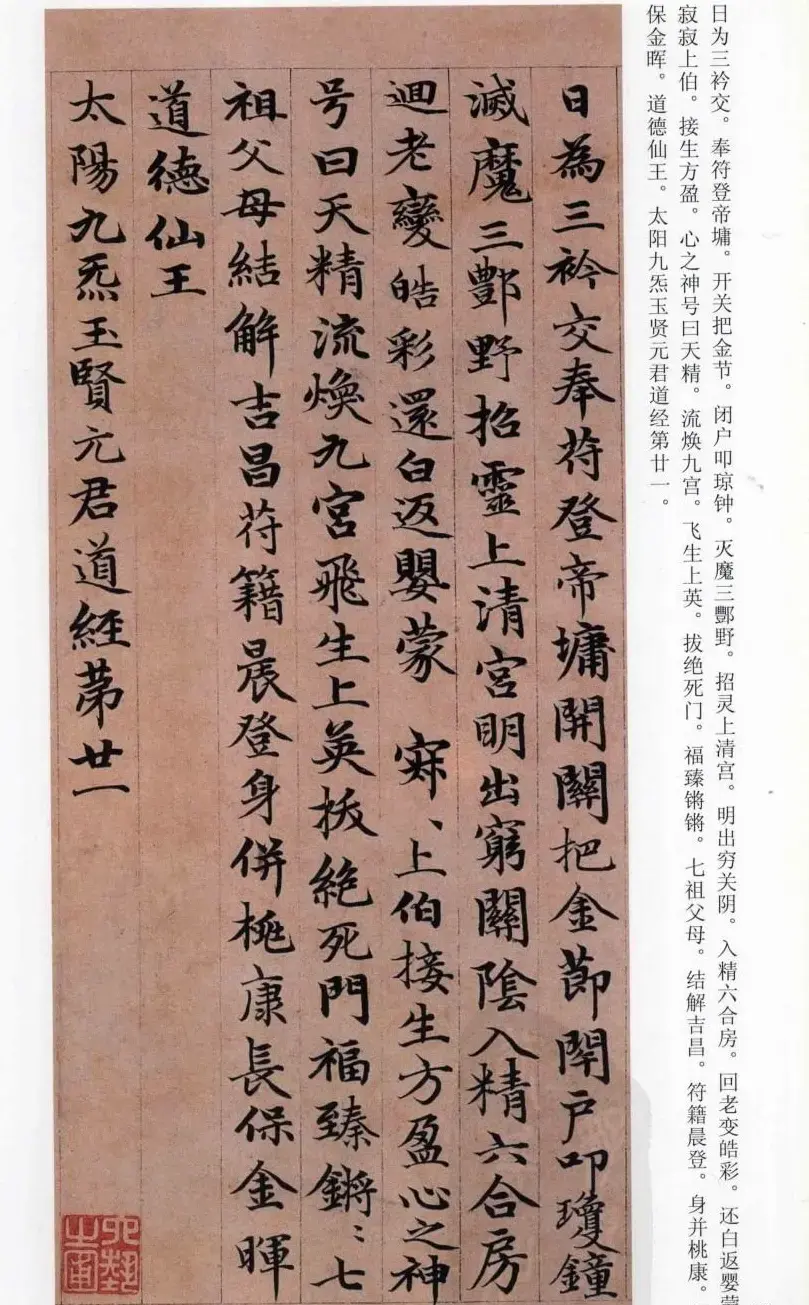 日为三衿交。奉符登帝墉。开关把金节。闭户叩琼钟。灭魔三酆野。招灵上清宫。明出穷关阴。入精六合房。回老变皓彩。还白返婴蒙
寂寂上伯。接生方盈。心之神号曰天精。流焕九宫。飞生上英。拔绝死门。福臻锵锵。七祖父母。结解吉昌。符籍晨登。身并桃康。
保金晖。道德仙王。太阳九炁玉贤元君道经第廿一。
日為三衿交奉苻登帝墉開關把金莭閇戸叩瓊鐘
滅魔三酆野招靈上清宮明出窮關陰入精六合房
迴老變皓彩還白返嬰蒙 寂、上伯接生方盈心之神
号曰天精流煥九宮飛生上英拔絶死門福臻鏘〻七
祖父母結解吉昌苻籍晨登身併桃康長保金暉
道德仙王
太陽九炁玉賢元君道經苐廿一